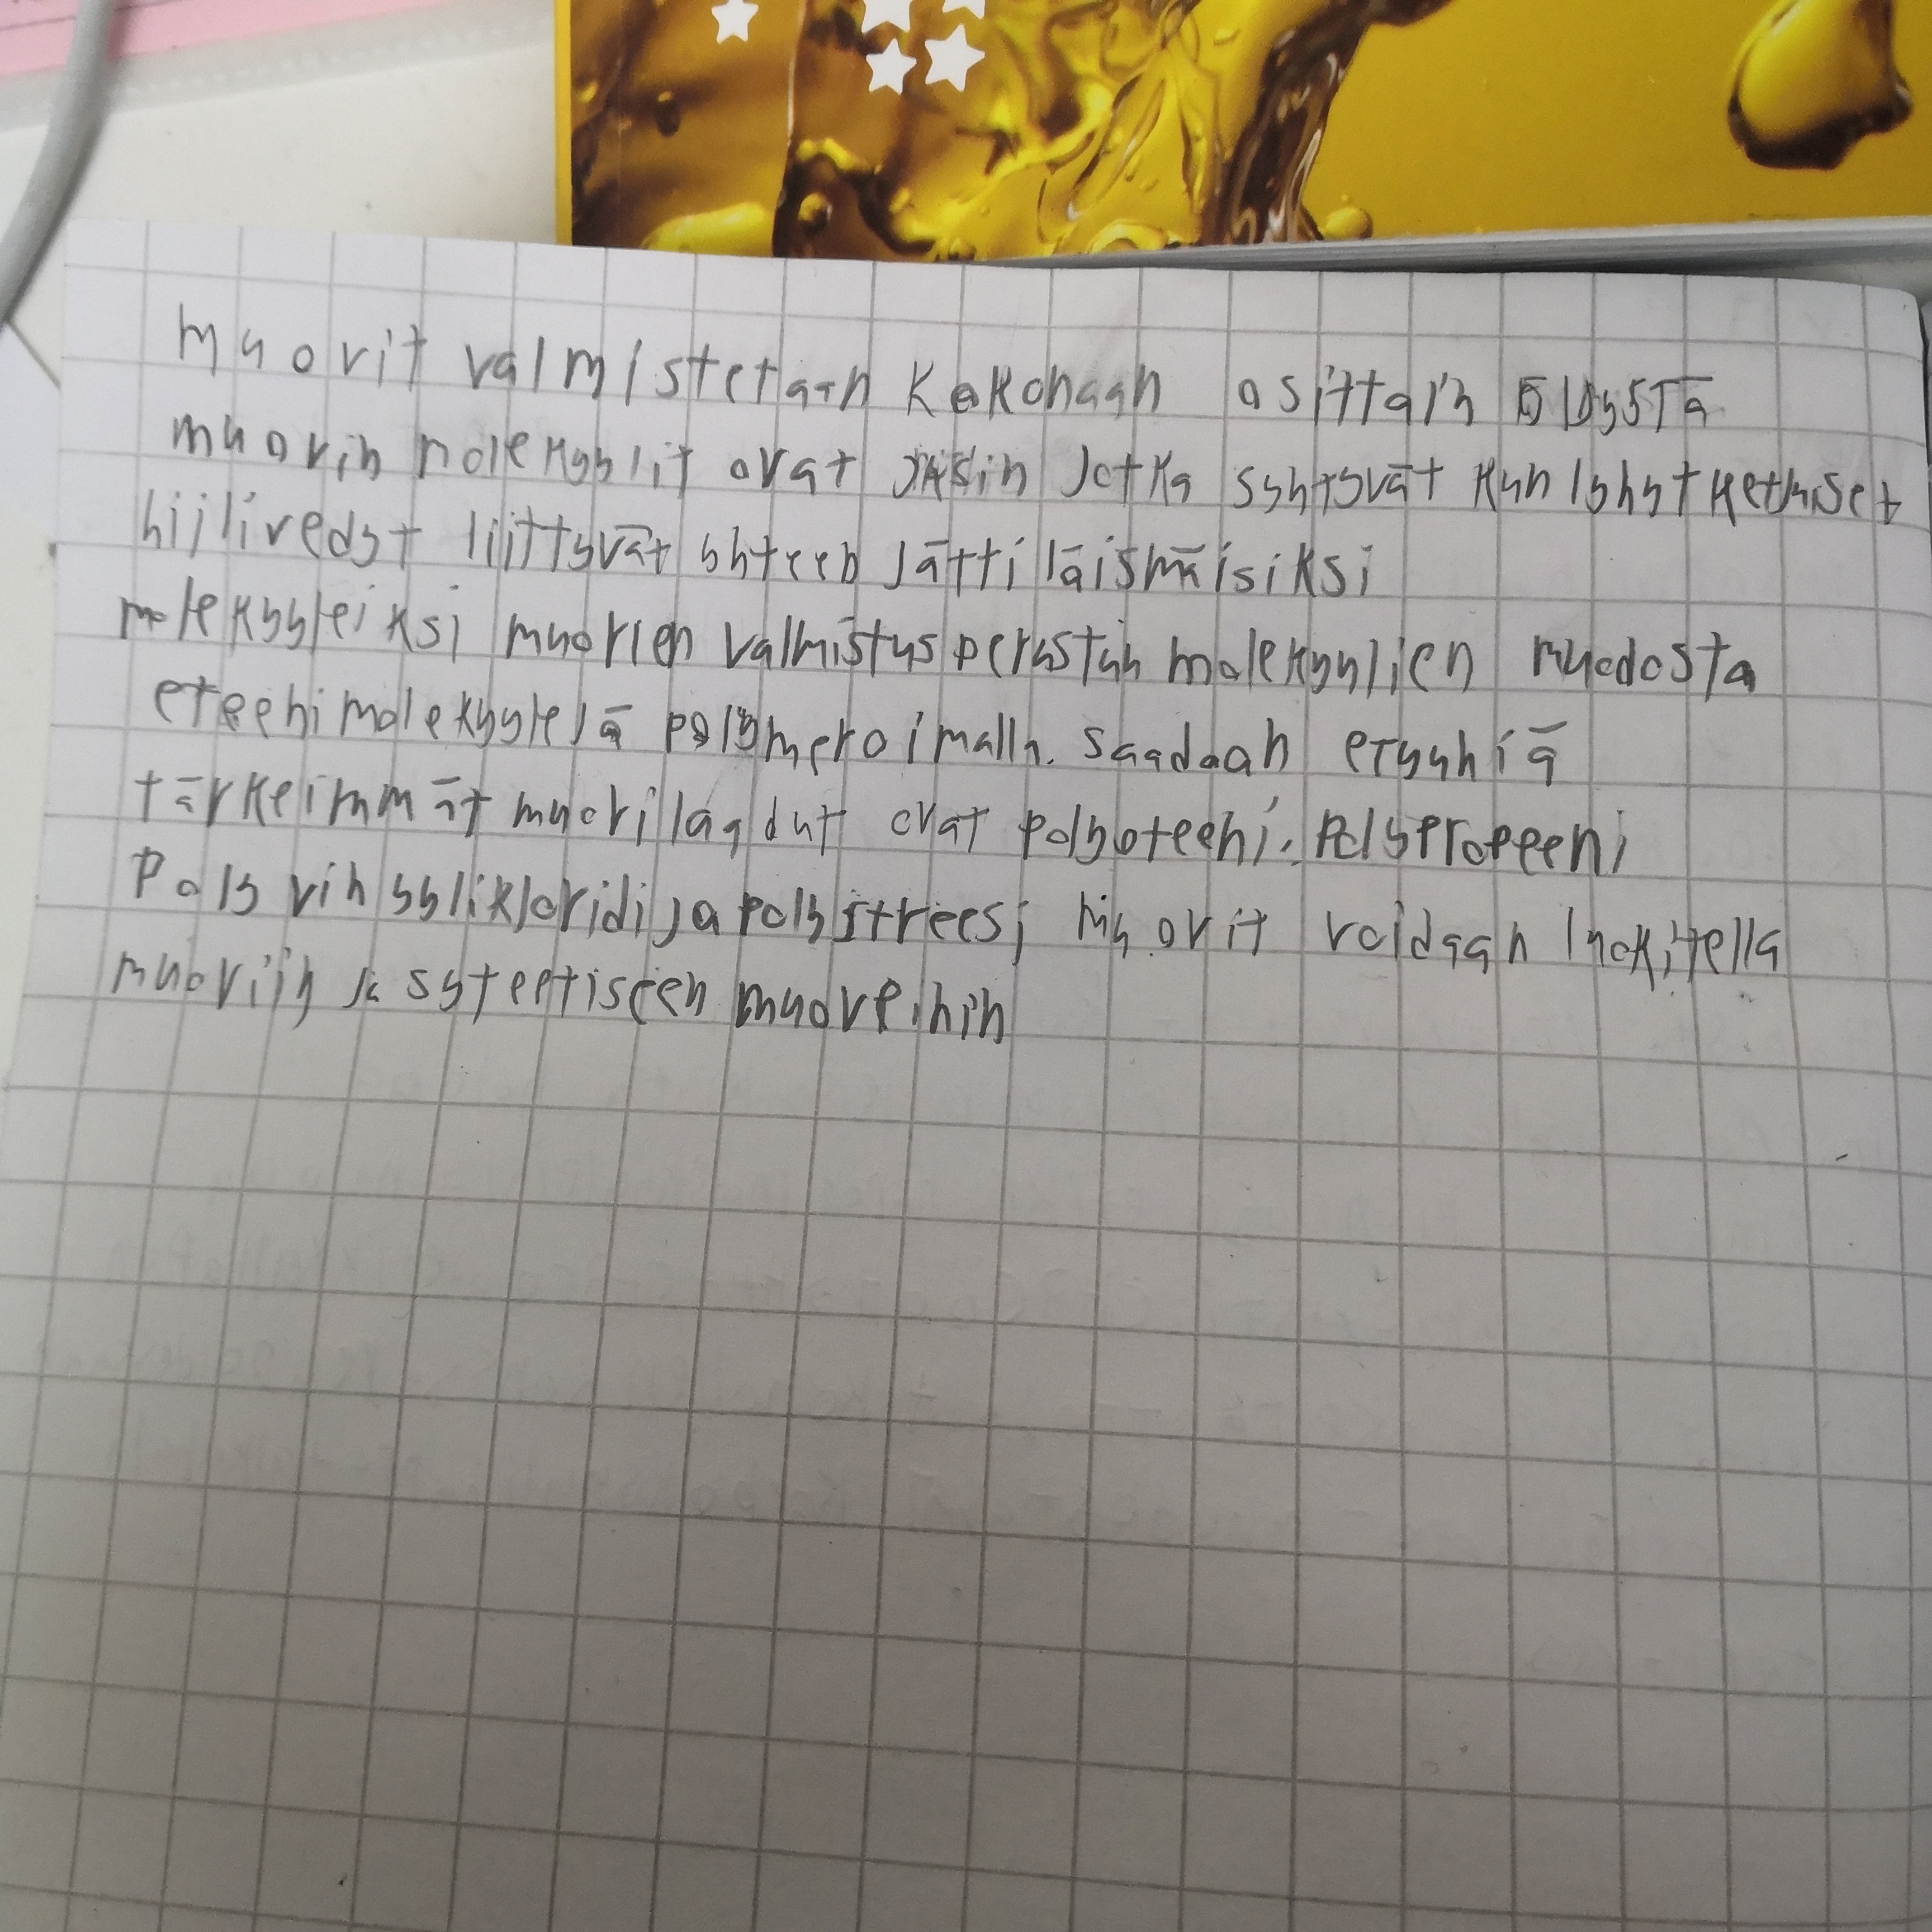 muorit valmistetaan kokonaan osittain öljystä
muorin molekyylit ovat jotka syntyvät kun lyhyt ketjuiset
hiilivedyt liittyvät yhteen jättiläismäisiksi
molekyyleiksi muorien valmistus perustuu molekyylien muodosta
eteenimolekyylejä polymeroimalla. saadaan etyyniä
tärkeimmät muorilaadut ovat polyoteeni. polypropeeni
Poly vinyylikloridi ja polystreesi muovit voidaan luokitella
muoviin ja syteetiseen muoveihin